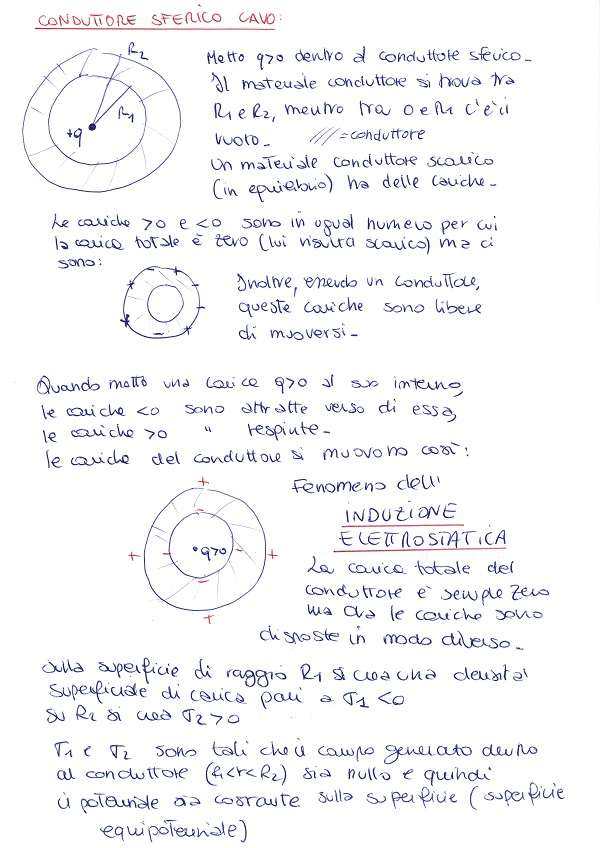 CONDUTTORE SFERICO CAVO:
R2
R1
+q
Metto q>0 dentro al conduttore sferico.
Il materiale conduttore si trova tra
R1 e R2, mentre tra 0 e R1 c'è il
vuoto. //// = conduttore
Un materiale conduttore scarico
(in equilibrio) ha delle cariche.
Le cariche >0 e <0 sono in ugual numero per cui
la carica totale è zero (lui risulta scarico) ma ci
sono:
Inoltre, essendo un conduttore,
queste cariche sono libere
di muoversi.
Quando metto una carica q>0 al suo interno,
le cariche <0 sono attratte verso di essa,
le cariche >0 " respinte.
le cariche del conduttore si muovono così:
Fenomeno dell'
INDUZIONE
ELETTROSTATICA
q>0
La carica totale del
conduttore è sempre zero
ma ora le cariche sono
disposte in modo diverso.
Sulla superficie di raggio R1 si crea una densità
superficiale di carica pari a σ1 <0
su R2 si crea σ2>0
σ1 e σ2 sono tali che il campo generato dentro
al conduttore (R1<r<R2) sia nullo e quindi
il potenziale sia costante sulla superficie (superficie
equipotenziale)